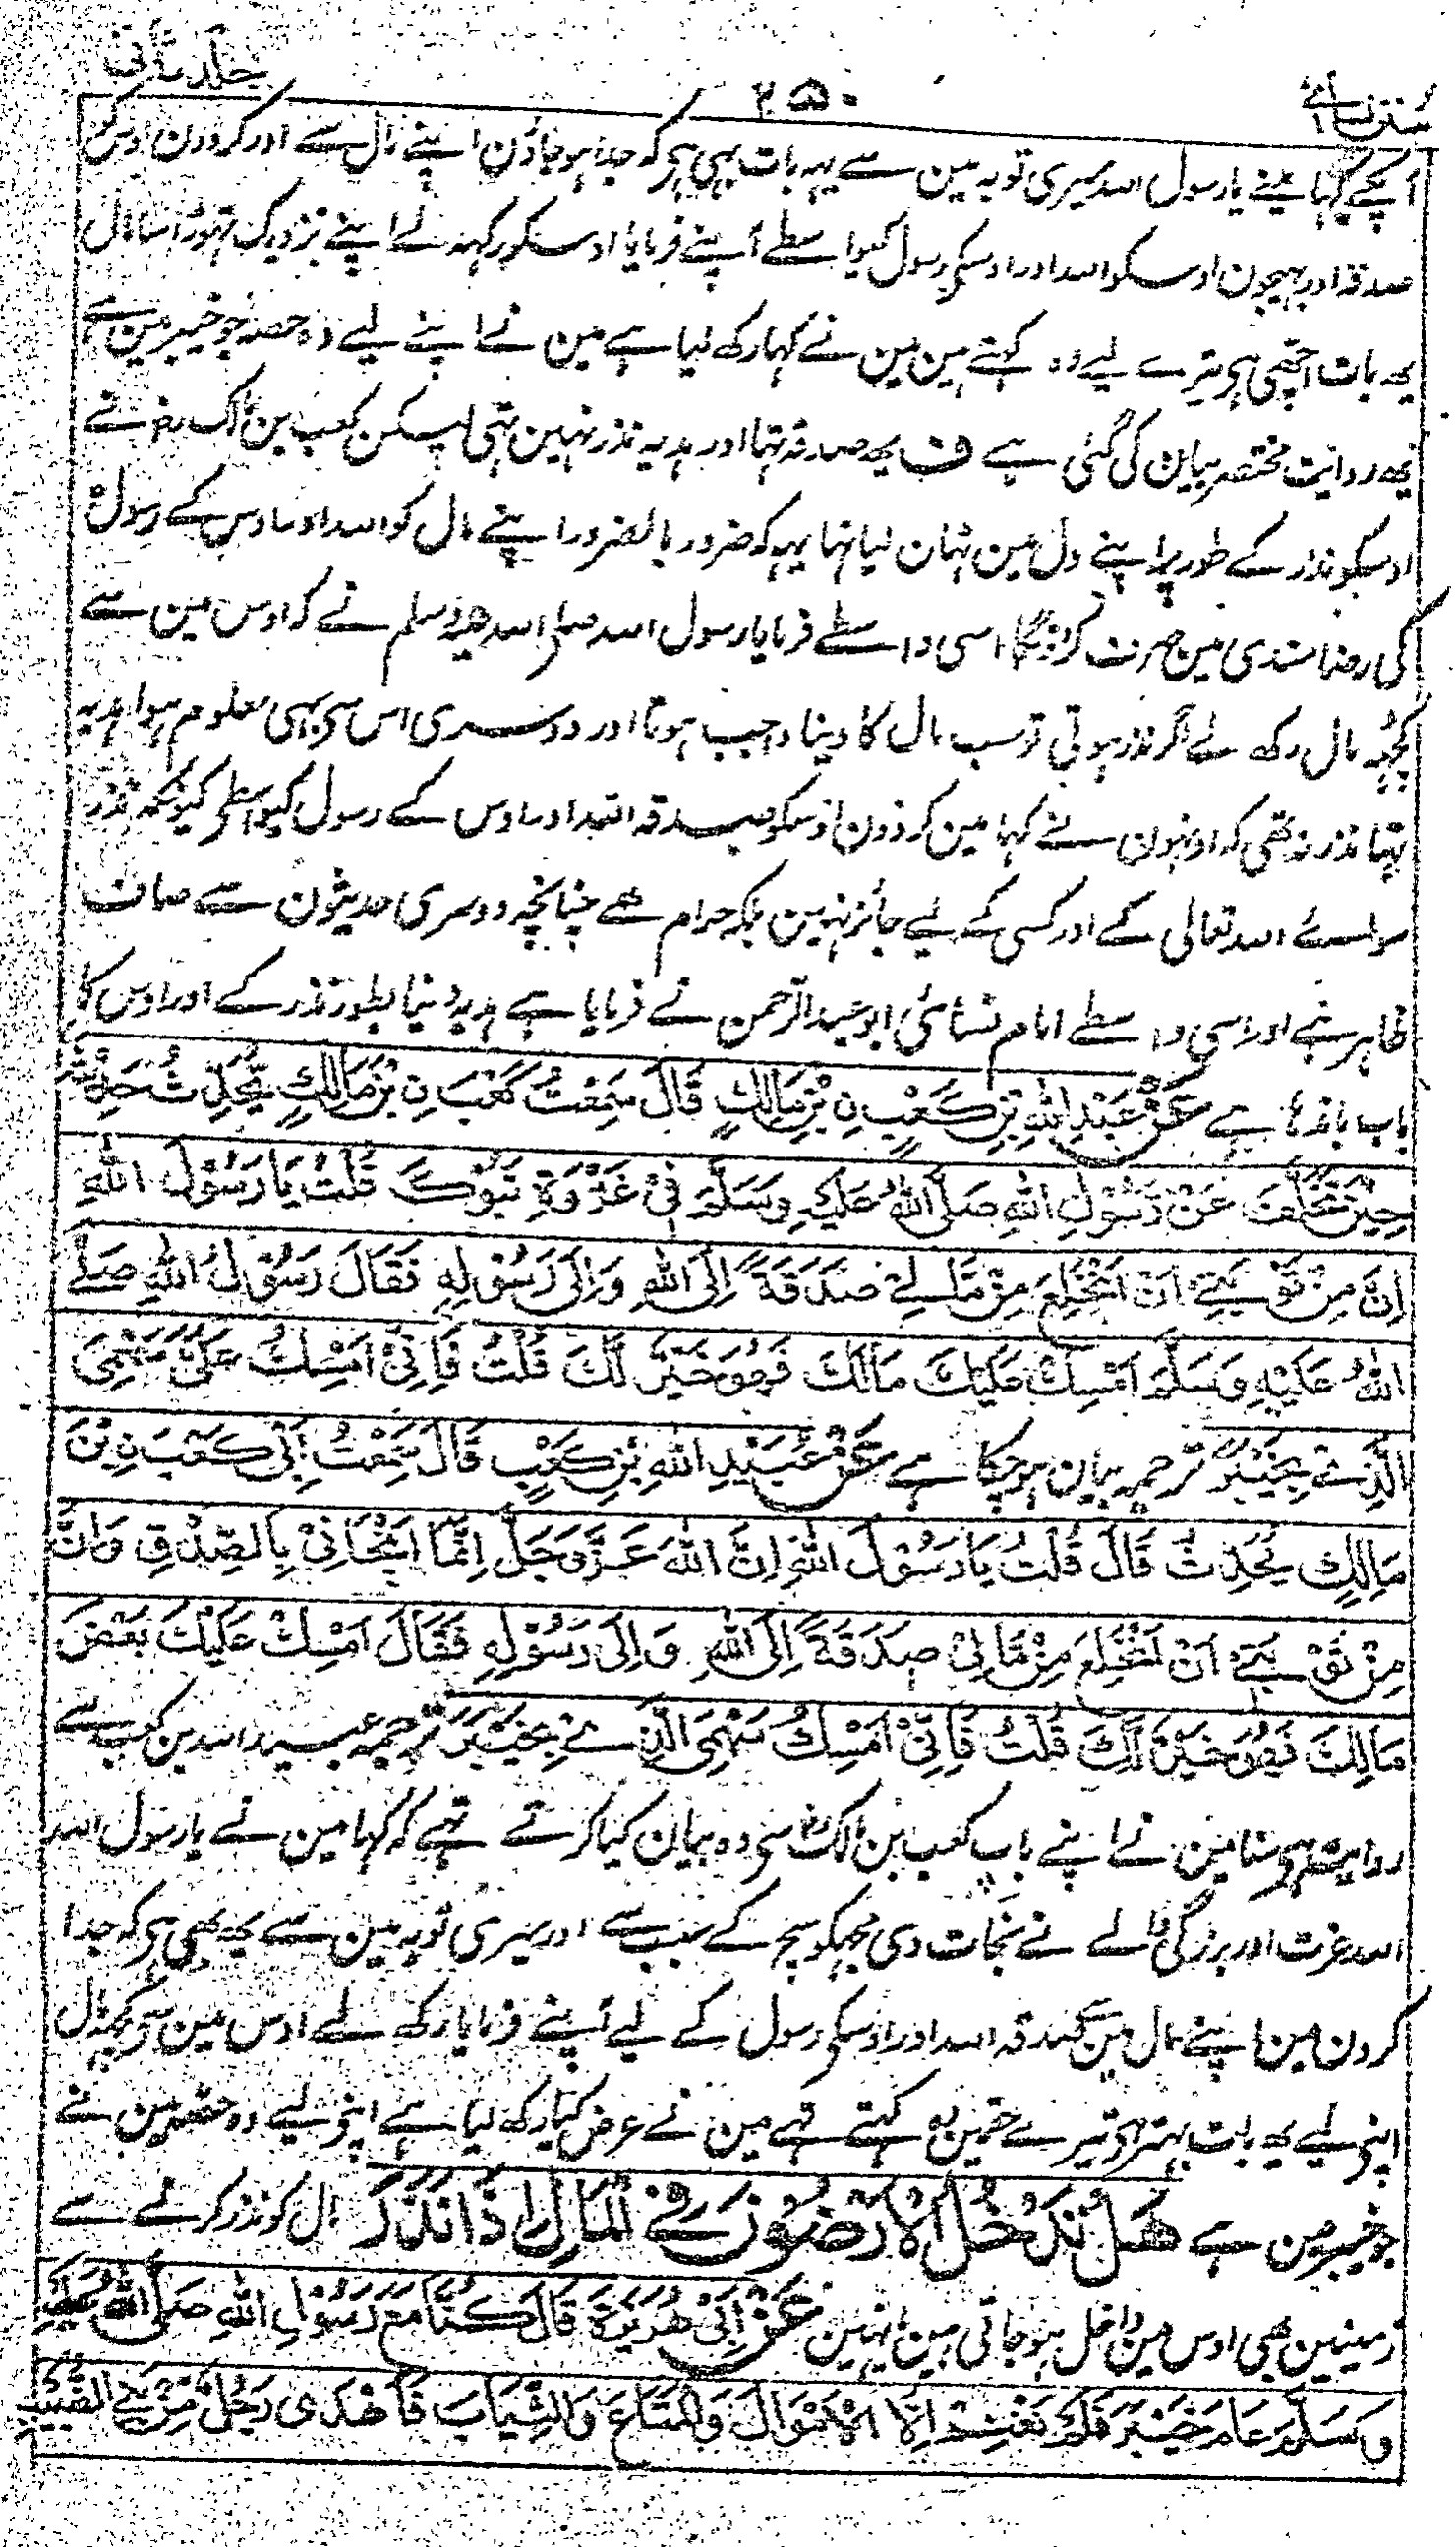 سنن نسائی ۲۵۰ جلد ثانی
آپسے کہا مینے یا رسول اللہ میری توبہ مین سے یہہ بات بہی ہی کہ جدا ہو جاؤن اپنے مال سے اور کرون اوسکو
صدقہ اور بہیجون اوسکو اللہ اور اوسکی رسول کیواسطے آپنے فرمایا اوسکو رکہہ لے اپنے نزدیک تہوڑا سا مال
یہہ بات اچھی ہی تیرے لیے وہ کہتے ہین مین نے کہا رکھ لیا ہے مین نے اپنے لیے وہ حصہ جو خیبر مین ہے
یہہ روایت مختصر بیان کی گئی ہے ف یہ صدقہ تہا اور ہدیہ نذر نہین تہی لیکن کعب بن مالک رضے نے
اوسکو نذر کے طور پر اپنے دل مین ٹہان لیا تہا یہہ کہ ضرور بالضرور اپنے مال کو اللہ اور اوس کے رسول
کی رضامندی مین صرف کرونگا اسی واسطے فرمایا رسول اللہ صلی اللہ علیہ وسلم نے کہ اوس مین سے
کچہہ مال رکھ لے اگر نذر ہوتی تو سب مال کا دینا واجب ہوتا اور دوسری اس سی بہی معلوم ہوا ہدیہ
تہا نذر نہ تھی کہ اونہون نے کہا مین کرؤن اوسکو صدقہ اللہ اور اوس کے رسول کیواسطی کیونکہ نذر
سواے اللہ تعالی کے اور کسی کے لیے جائز نہین بلکہ حرام ہے چنانچہ دوسری حدیثون سے صاف
ظاہر ہے اور اسی واسطے امام نسائی ابو عبدالرحمن نے فرمایا ہے ہدیہ دینا بطور نذر کے اور اوس کا
باب باندہا ہے عَنْ عَبْدِ اللهِ بْنِ كَعْبِ نِ بْنِ مَالِكٍ قَالَ سَمِعْتُ كَعْبَ نِ بْنَ مَالِكٍ يُحَدِّثُ حَدِيْثَهُ
حِيْنَ تَخَلَّفَ عَنْ رَسُوْلِ اللهِ صَلَّى اللهُ عَلَيْهِ وَسَلَّمَ فِيْ غَزْوَةِ تَبُوْكَ قُلْتُ يَا رَسُوْلَ اللهِ
اِنَّ مِنْ تَوْبَتِيْ اَنْ اَنْخَلِعَ مِنْ مَّالِيْ صَدَقَةً اِلَى اللهِ وَاِلَى رَسُوْلِهِ فَقَالَ رَسُوْلُ اللهِ صَلَّى
اللهُ عَلَيْهِ وَسَلَّمَ اَمْسِكْ عَلَيْكَ مَالَكَ فَهُوَ خَيْرٌ لَّكَ قُلْتُ فَاِنِّيْ اُمْسِكُ عَلَيَّ سَهْمِيَ
الَّذِيْ بِخَيْبَرَ ترجمہ بیان ہو چکا ہے عَنْ عُبَيْدِ اللهِ بْنِ كَعْبٍ قَالَ سَمِعْتُ اَبِيْ كَعْبَ نِ بْنَ
مَالِكٍ يُحَدِّثُ قَالَ قُلْتُ يَا رَسُوْلَ اللهِ اِنَّ اللهَ عَزَّ وَجَلَّ اِنَّمَا اَنْجَانِيْ بِالصِّدْقِ وَاِنَّ
مِنْ تَوْبَتِيْ اَنْ اَنْخَلِعَ مِنْ مَّالِيْ صَدَقَةً اِلَى اللهِ وَاِلَى رَسُوْلِهِ فَقَالَ اَمْسِكْ عَلَيْكَ بَعْضَ
مَالِكَ فَهُوَ خَيْرٌ لَّكَ قُلْتُ فَاِنِّيْ اُمْسِكُ سَهْمِيَ الَّذِيْ بِخَيْبَرَ ترجمہ عبید اللہ بن کعب سے
روایت ہی سنا مین نے اپنے باپ کعب بن مالک سی وہ بیان کیا کرتے تہے کہ کہا مین نے یا رسول اللہ
اللہ عزت اور بزرگی والے نے نجات دی مجہکو سچ کے سبب سے اور میری توبہ مین سے یہ بھی ہی کہ جدا
کرون مین اپنے مال مین سے صدقہ اللہ اور اوسکی رسول کے لیے آپنے فرمایا رکھ لے اوس مین سی کچہہ مال
اپنی لیے یہ بات بہتر ہی تیرے حق مین وہ کہتے تہے مین نے عرض کیا رکھ لیا ہے اپنی لیے وہ حصہ مین نے
جو خیبر مین ہے هَلْ تَدْخُلُ الْاَرَضُوْنَ فِي الْمَالِ اِذَا نَذَرَ مال کو نذر کرنے سے
زمینین بھی اوس مین داخل ہو جاتی ہین یا نہین عَنْ اَبِيْ هُرَيْرَةَ قَالَ كُنَّا مَعَ رَسُوْلِ اللهِ صَلَّى اللهُ عَلَيْهِ
وَسَلَّمَ عَامَ خَيْبَرَ فَلَمْ نَغْنَمْ اِلَّا الْاَمْوَالَ وَالْمَتَاعَ وَالثِّيَابَ فَاَهْدَى رَجُلٌ مِّنْ بَنِي الضُّبَيْبِ